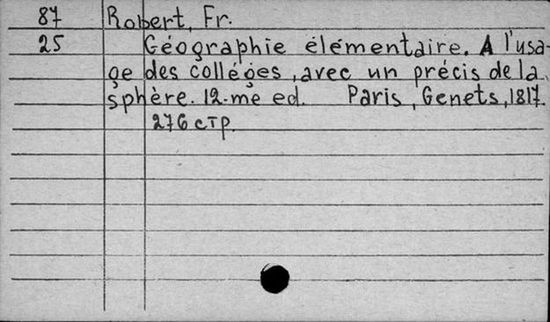 87 Robert, Fr.
25 Géographie élémentaire. A l'usa-
ge des colléges, avec un précis de la
sphère. 12-me ed. Paris, Genets, 1817.
276 стр.